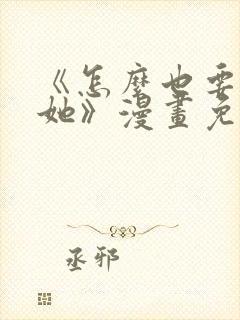 《怎麼也要
她》漫畫免
丞邪